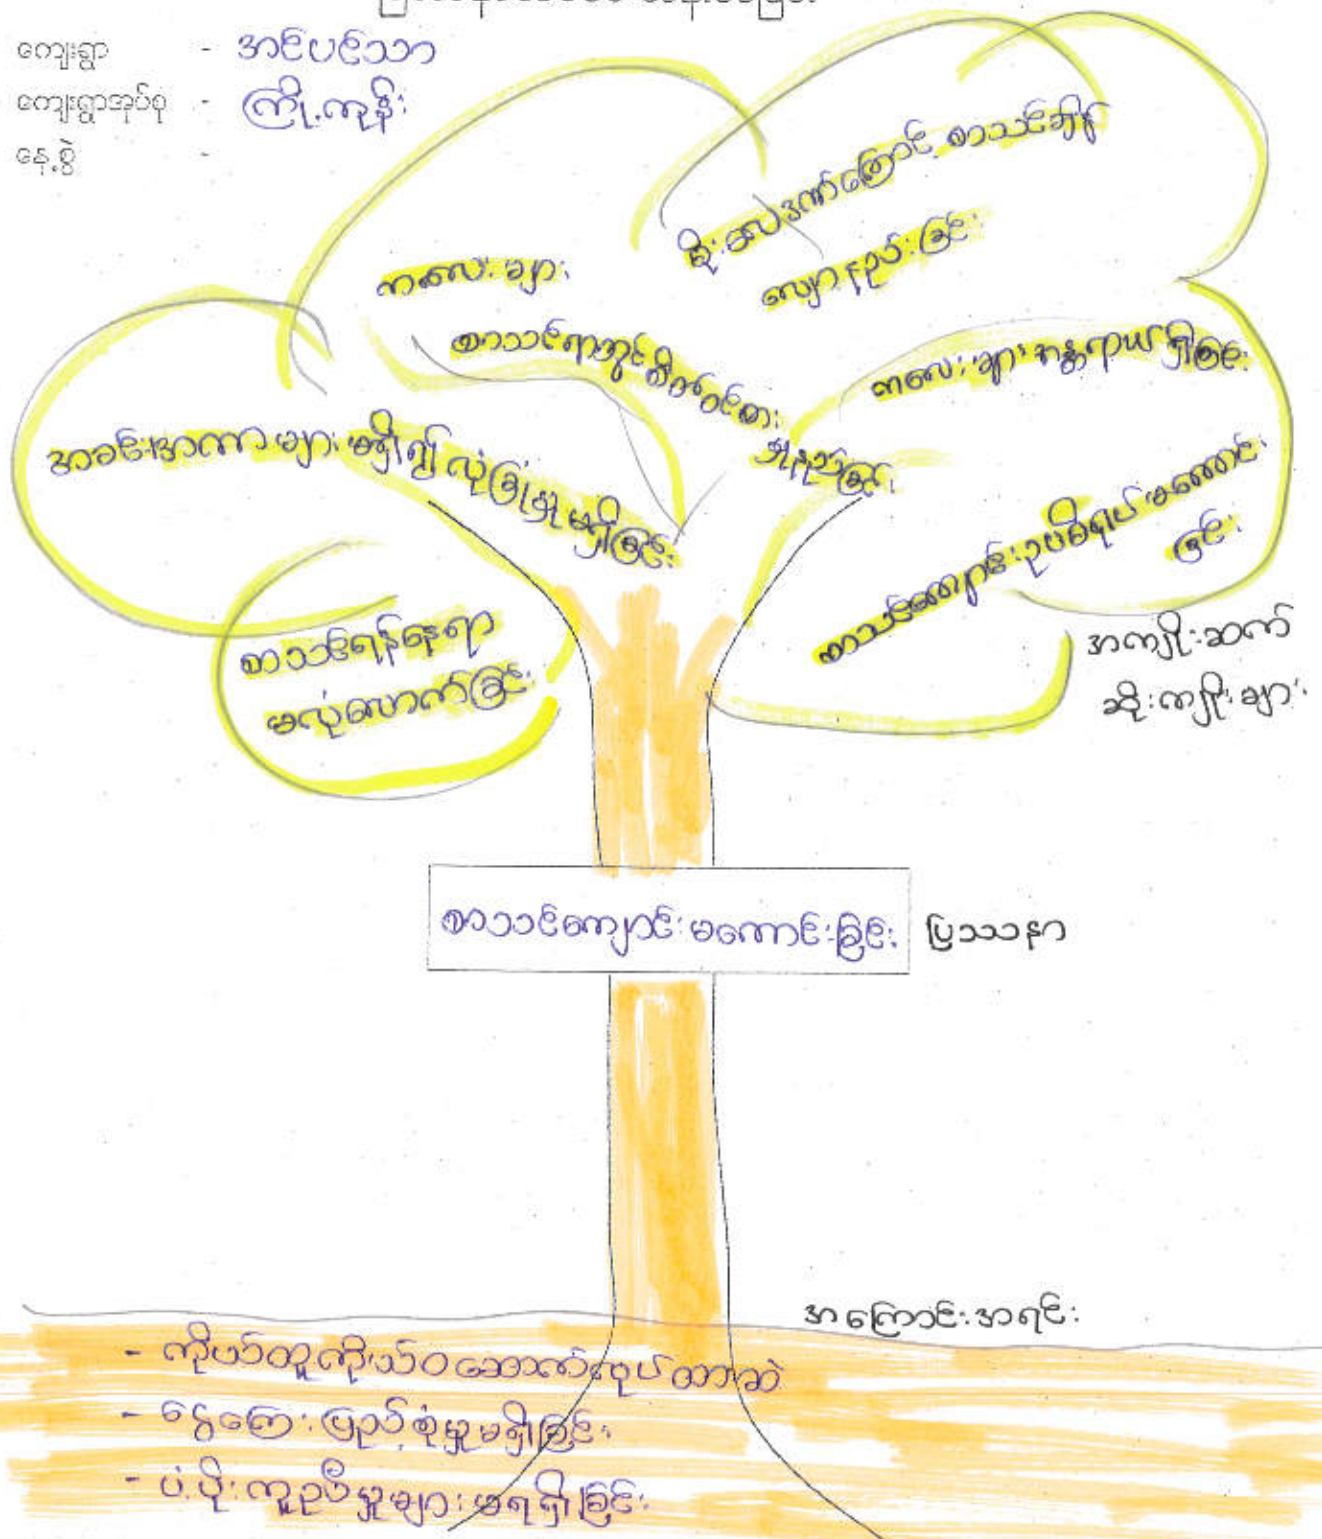 ကျေးရွာ - အင်ပင်သာ
ကျေးရွာအုပ်စု - ကြို့ကုန်း
နေ့စွဲ -
မိုးလေဒဏ်ကြောင့် စာသင်ချိန်
လျော့နည်းခြင်း
ကလေးများ
စာသင်ရာတွင် စိတ်ဝင်စား
မှုနည်းခြင်း
ကလေးများ အန္တရာယ်ရှိခြင်း
အခင်းအကာများ မရှိ၍ လုံခြုံမှု မရှိခြင်း
စာသင်ကျောင်း ဥပဓိရုပ် မကောင်း
ခြင်း
စာသင်ရန်နေရာ
မလုံလောက်ခြင်း
အကျိုးဆက်
ဆိုးကျိုးများ
စာသင်ကျောင်းမကောင်းခြင်း ပြဿနာ
အကြောင်းအရင်း
- ကိုယ်ထူကိုယ်ထ ဆောက်လုပ်ထားဆဲ
- ငွေကြေးပြည့်စုံမှုမရှိခြင်း
- ပံ့ပိုးကူညီမှုများ မရရှိခြင်း